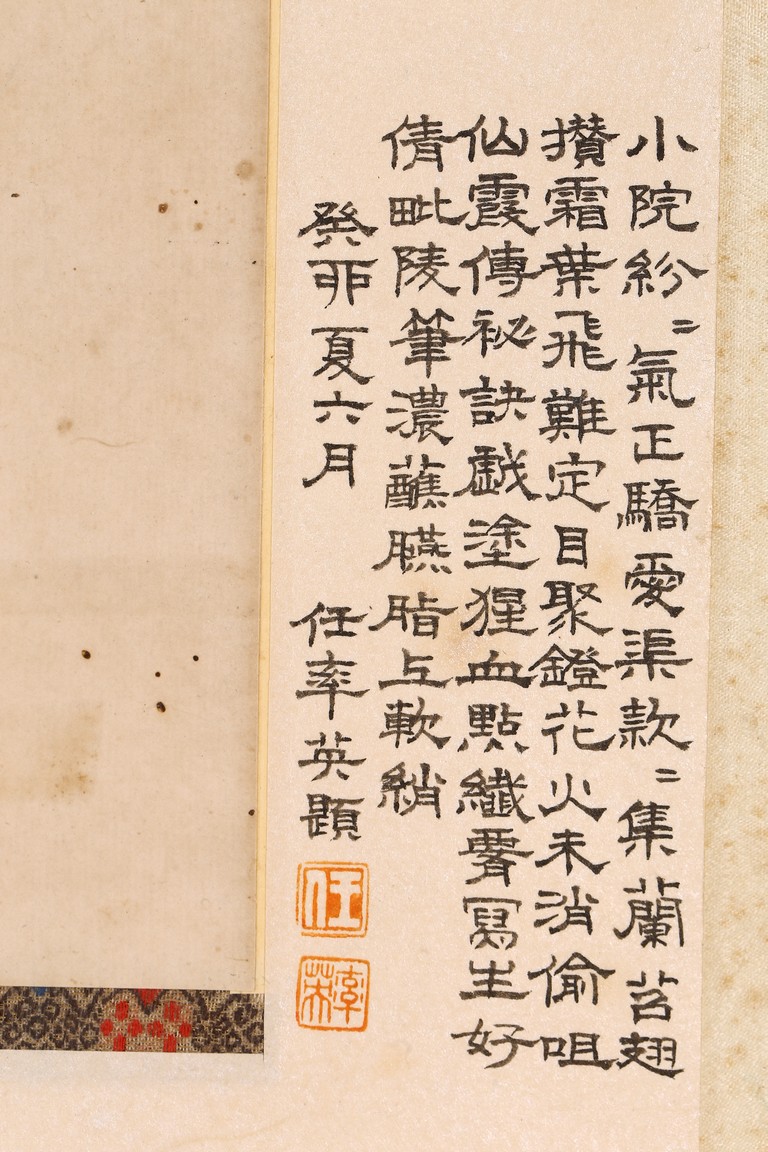 小院紛〻氣正驕愛渠款〻集蘭苕翅
攢霜葉飛難定目聚鐙花火未消偷咀
仙霞傳祕訣戱塗猩血點纖霄寫生好
倩毗陵筆濃蘸臙脂上軟綃
癸卯夏六月 任率英題
任
率英